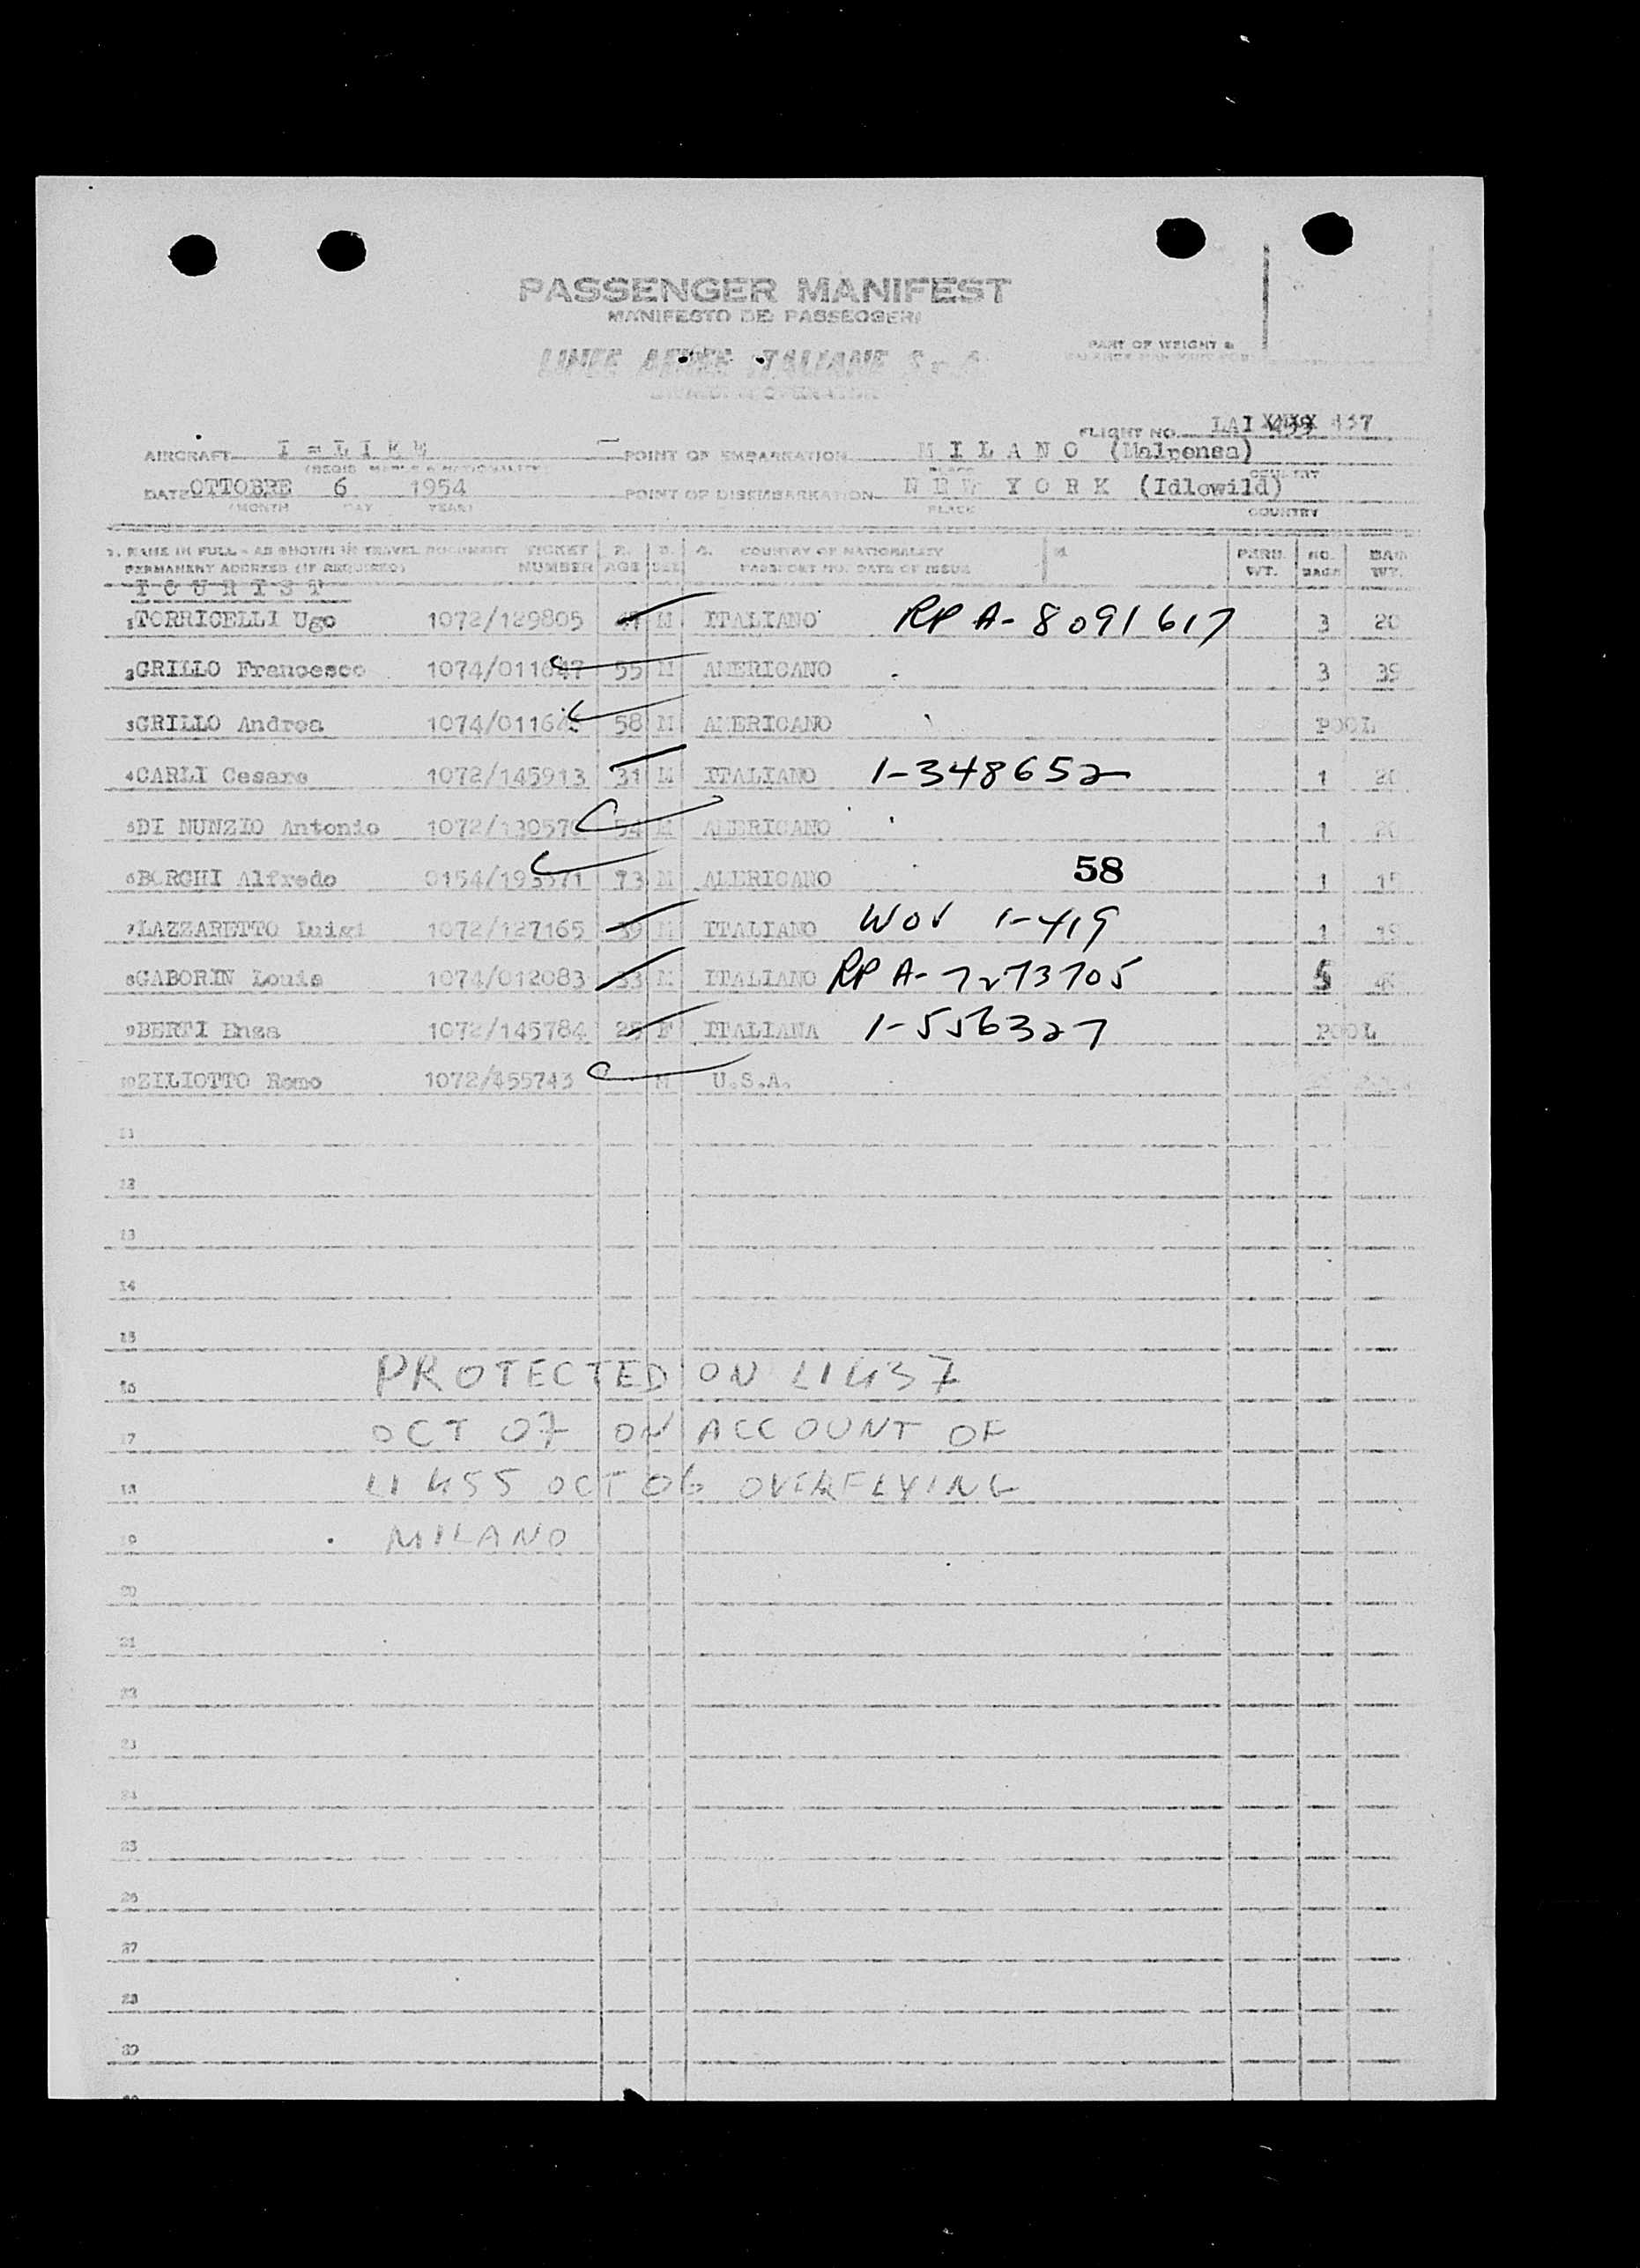 PASSENGER MANIFEST
MANIFESTO DEI PASSEGGERI
LINEE AEREE ITALIANE S.p.A.
PART OF WEIGHT &
FLIGHT NO. LAI 437
AIRCRAFT POINT OF EMBARKATION MILANO (Malpensa)
PLACE COUNTRY
DATE OTTOBRE 6 1954 POINT OF DISEMBARKATION NEW YORK (Idlewild)
(MONTH DAY YEAR) PLACE COUNTRY
1. NAME IN FULL - AS SHOWN IN TRAVEL DOCUMENT TICKET 2. 3. 4. COUNTRY OF NATIONALITY PERS. NO. BAG
PERMANENT ADDRESS (IF REQUIRED) NUMBER AGE SEX PASSPORT NO. DATE OF ISSUE WT. BAGS WT.
TOURIST
1 TORRICELLI Ugo 1072/129805 M ITALIANO RP A-8091617 3 20
2 GRILLO Francesco 55 M AMERICANO 3 39
3 GRILLO Andrea 58 M AMERICANO POOL
4 CARLI Cesare 1072/145913 31 M ITALIANO 1-348652 1 20
5 DI NUNZIO Antonio 54 M AMERICANO 1 20
6 BORGHI Alfredo 73 M AMERICANO 58 1
7 LAZZARETTO Luigi 1072/127165 39 M ITALIANO 1-419 1
8 GABORIN Louis 1074/012083 33 M ITALIANO RP A-7273705 5
9 BERTI Enza 1072/145784 F ITALIANA 1-556327 POOL
10 ZILIOTTO Romo 1072/455743 M U.S.A.
11
12
13
14
15
16 PROTECTED ON LI 437
17 OCT 07 ON ACCOUNT OF
18 LI 455 OCT 06 OVERFLYING
19 MILANO
20
21
22
23
24
25
26
27
28
29